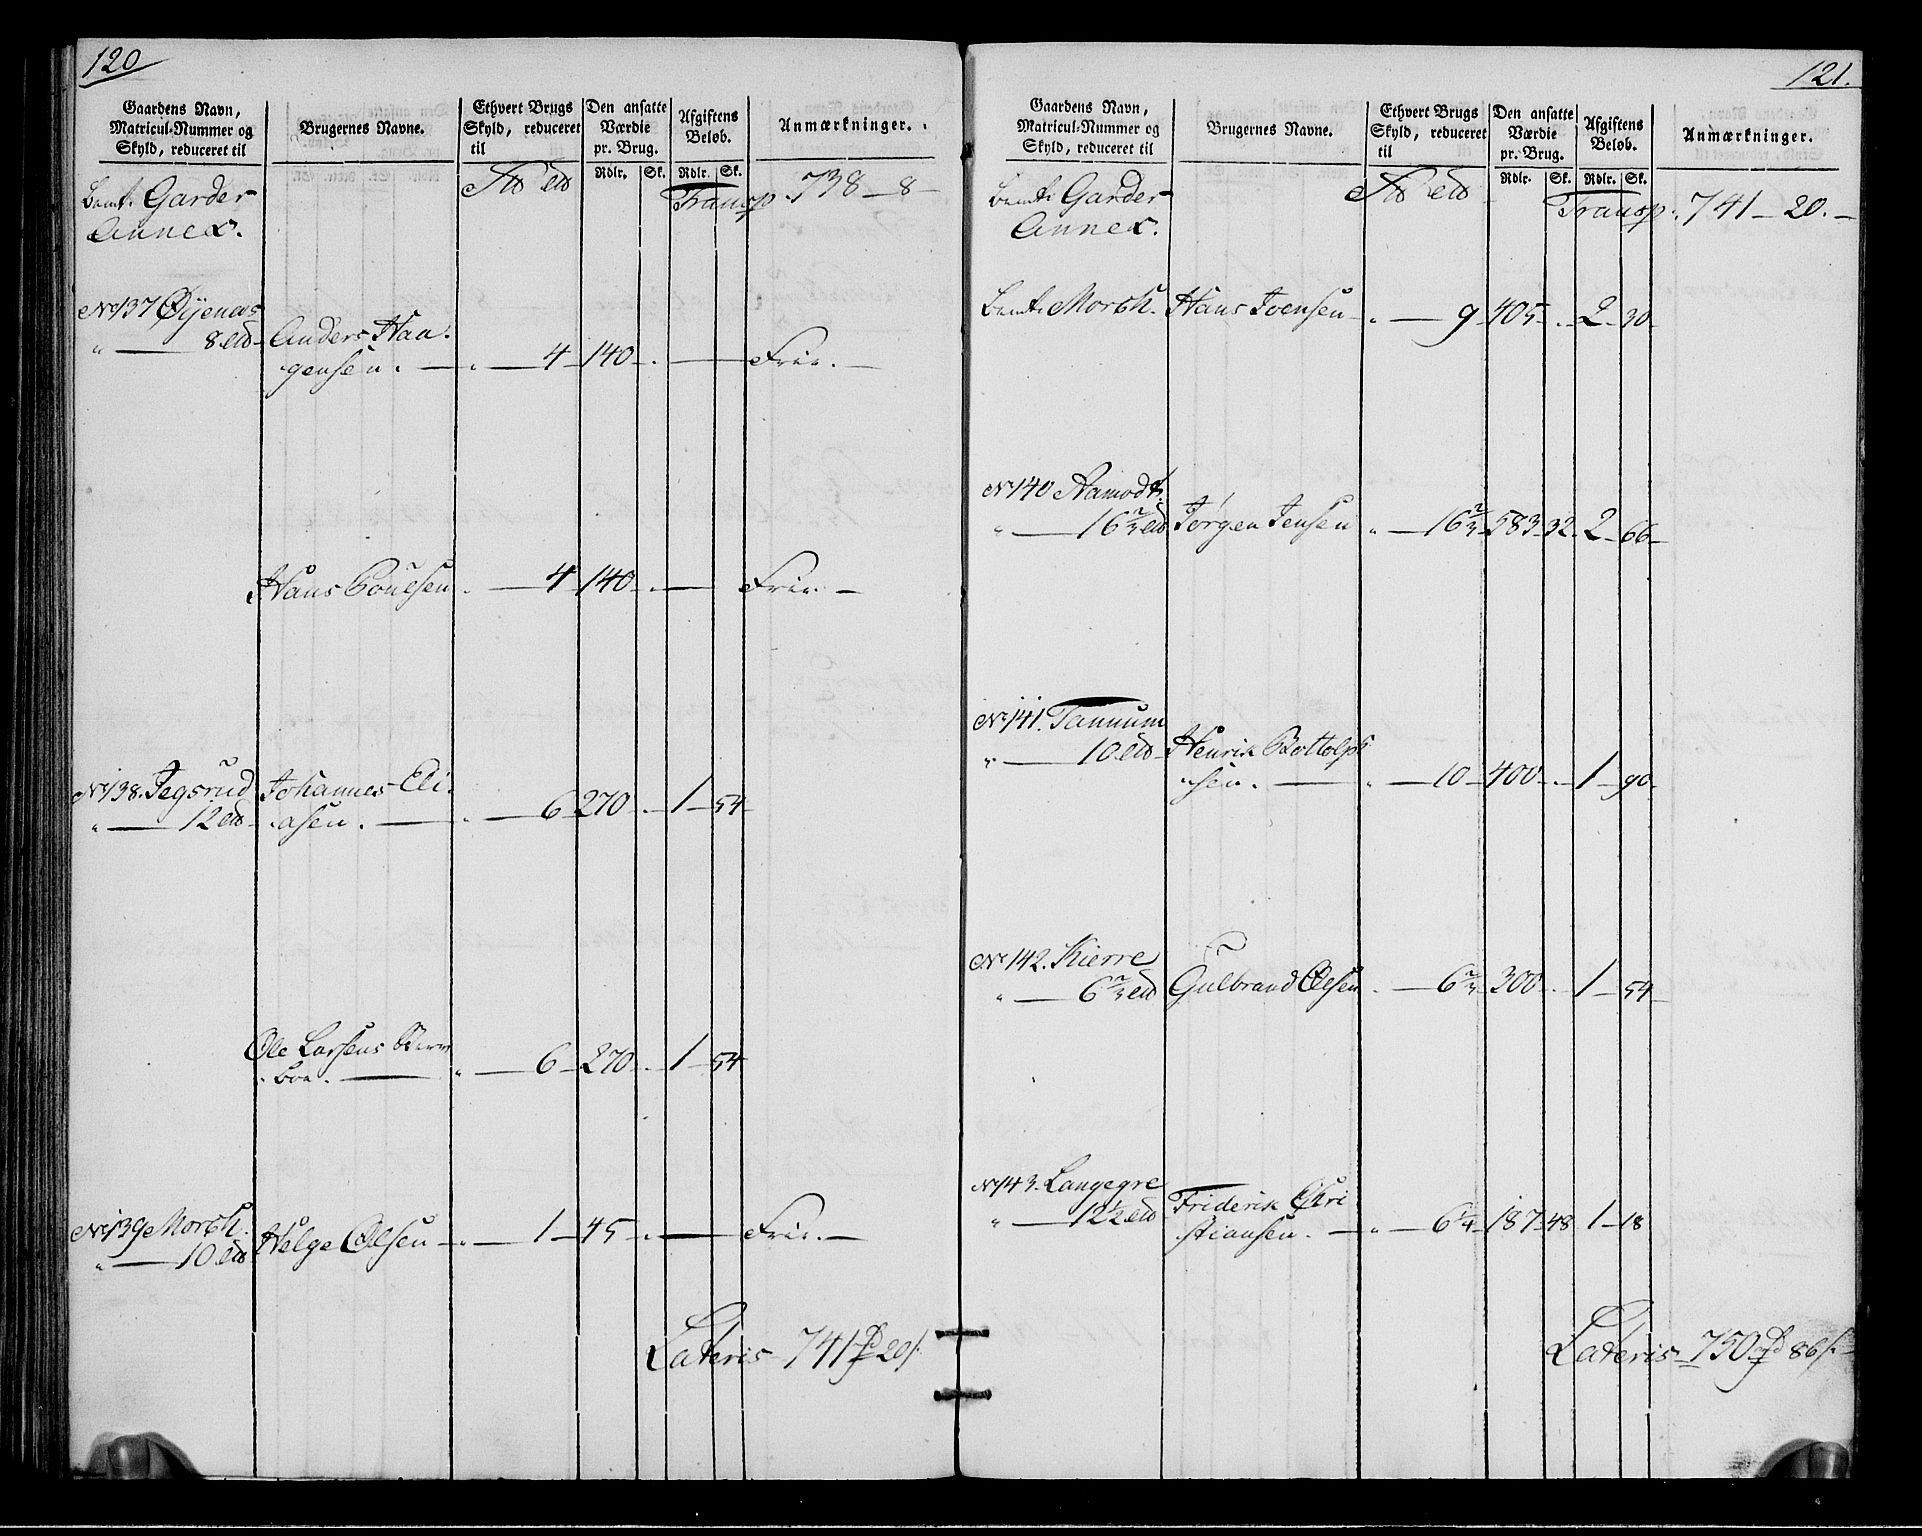 120
Gaardens Navn, Matricul-Nummer og Skyld, reduceret til | Brugernes Navne. | Ethvert Brugs Skyld, reduceret til | Den ansatte Værdie pr. Brug. | Afgiftens Beløb. | Anmærkninger.
Rdlr. | Sk. | Rdlr. | Sk.
Transp. 738 – 8 –
Bemte Garder
Annex.
No 137 Øijenæs
8
Anders Haa-
gensen. — 4 – 140 – . — Frie. —
Hans Poulsen . — 4 – 140 – . — Frie. —
No 138. Jegsrud
12
Johannes Eli-
asen. — 6 – 270 – . – 1 – 54 –
Ole Larsens
boe. — 6 – 270 – . – 1 – 54
No 139 Morck.
10
Helge Olsen — 1 – 45 – . — Frie. —
Lateris – 741 20 s.
121.
Gaardens Navn, Matricul-Nummer og Skyld, reduceret til | Brugernes Navne. | Ethvert Brugs Skyld, reduceret til | Den ansatte Værdie pr. Brug. | Afgiftens Beløb. | Anmærkninger.
Rdlr. | Sk. | Rdlr. | Sk.
Transp. 741 – 20. –
Bemte Garder
Annex.
Bemte Morck. Hans Ivensen — 9 – 405 – . – 2 – 30 –
No 140 Aamodt.
16 2/3 Jørgen Jensen — 16 2/3 – 583 – 32 – 2 – 66 –
No 141. Tannum
10 Henrik Bottolph-
sen. — 10 – 400 – . – 1 – 90 –
No 142. Kierre
6 2/3 Gulbrand Olsen — 6 2/3 – 300 – . – 1 – 54 –
No 143. Langegre
12 1/2 Friderik Chri
stiansen. — 6 1/4 – 187 – 48 1 – 18
Lateris – 750 86 s.